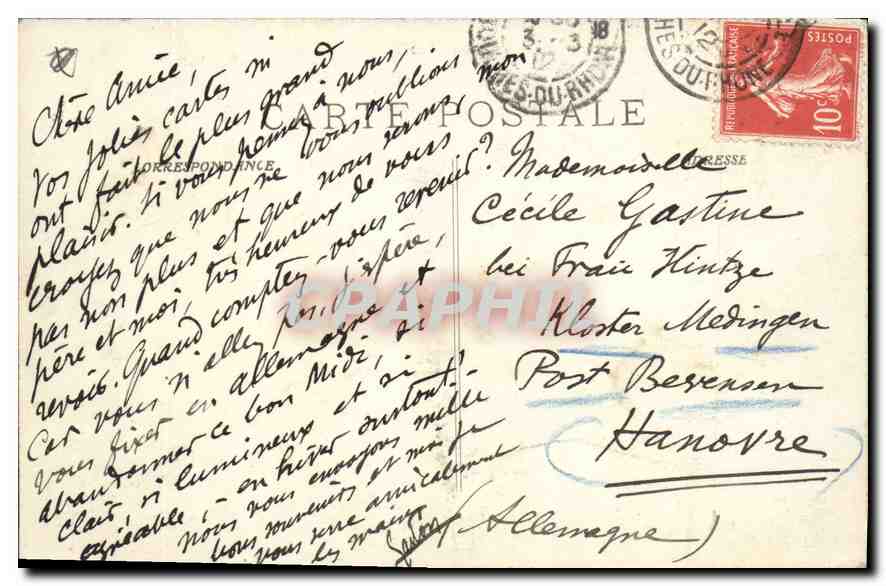 Chère Amie,
Vos jolies cartes m'
ont fait le plus grand
plaisir. Si vous pensez à nous,
croyez que nous ne vous oublions
pas non plus et que nous serons, mon
père et moi, très heureux de vous
revoir. Quand comptez-vous revenir?
Car vous n'allez pas, j'espère,
vous fixer en Allemagne et
abandonner ce bon Midi, si
clair, si lumineux et si
agréable, - en hiver surtout!
Nous vous envoyons mille
bons souvenirs et moi je
vous serre amicalement
les mains
CARTE POSTALE
CORRESPONDANCE
ADRESSE
BCHES-DU-RHONE
REPUBLIQUE FRANÇAISE
POSTES
10c
Mademoiselle
Cécile Gastine
bei Frau Hintze
Kloster Medingen
Post Bevensen
Hanovre
(Allemagne)
CPAPHIL